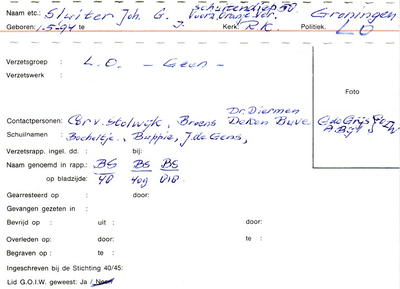 Schuitendiep 50
Naam etc.: Sluiter Joh. G. Voorz. Oranje Ver. Groningen
Geboren: 1-5-94 te J. Kerk: R.K. Politiek: LO
Verzetsgroep : L.O. - Geen -
Verzetswerk :
Foto
Dr. Diermen
Contactpersonen: v. Stolwijk, Broens Deken Buve
Schuilnaam : Bocheltje, Buppie, J. de Gens,
Verzetsrapp. ingel. dd. : bij:
Naam genoemd in rapp.: BS BS BS
op bladzijde: 40 40g 010
Gearresteerd op : door:
Gevangen gezeten in :
Bevrijd op : uit : door:
Overleden op: door: te :
Begraven op : te :
Ingeschreven bij de Stichting 40/45:
Lid G.O.I.W. geweest: Ja / Neen